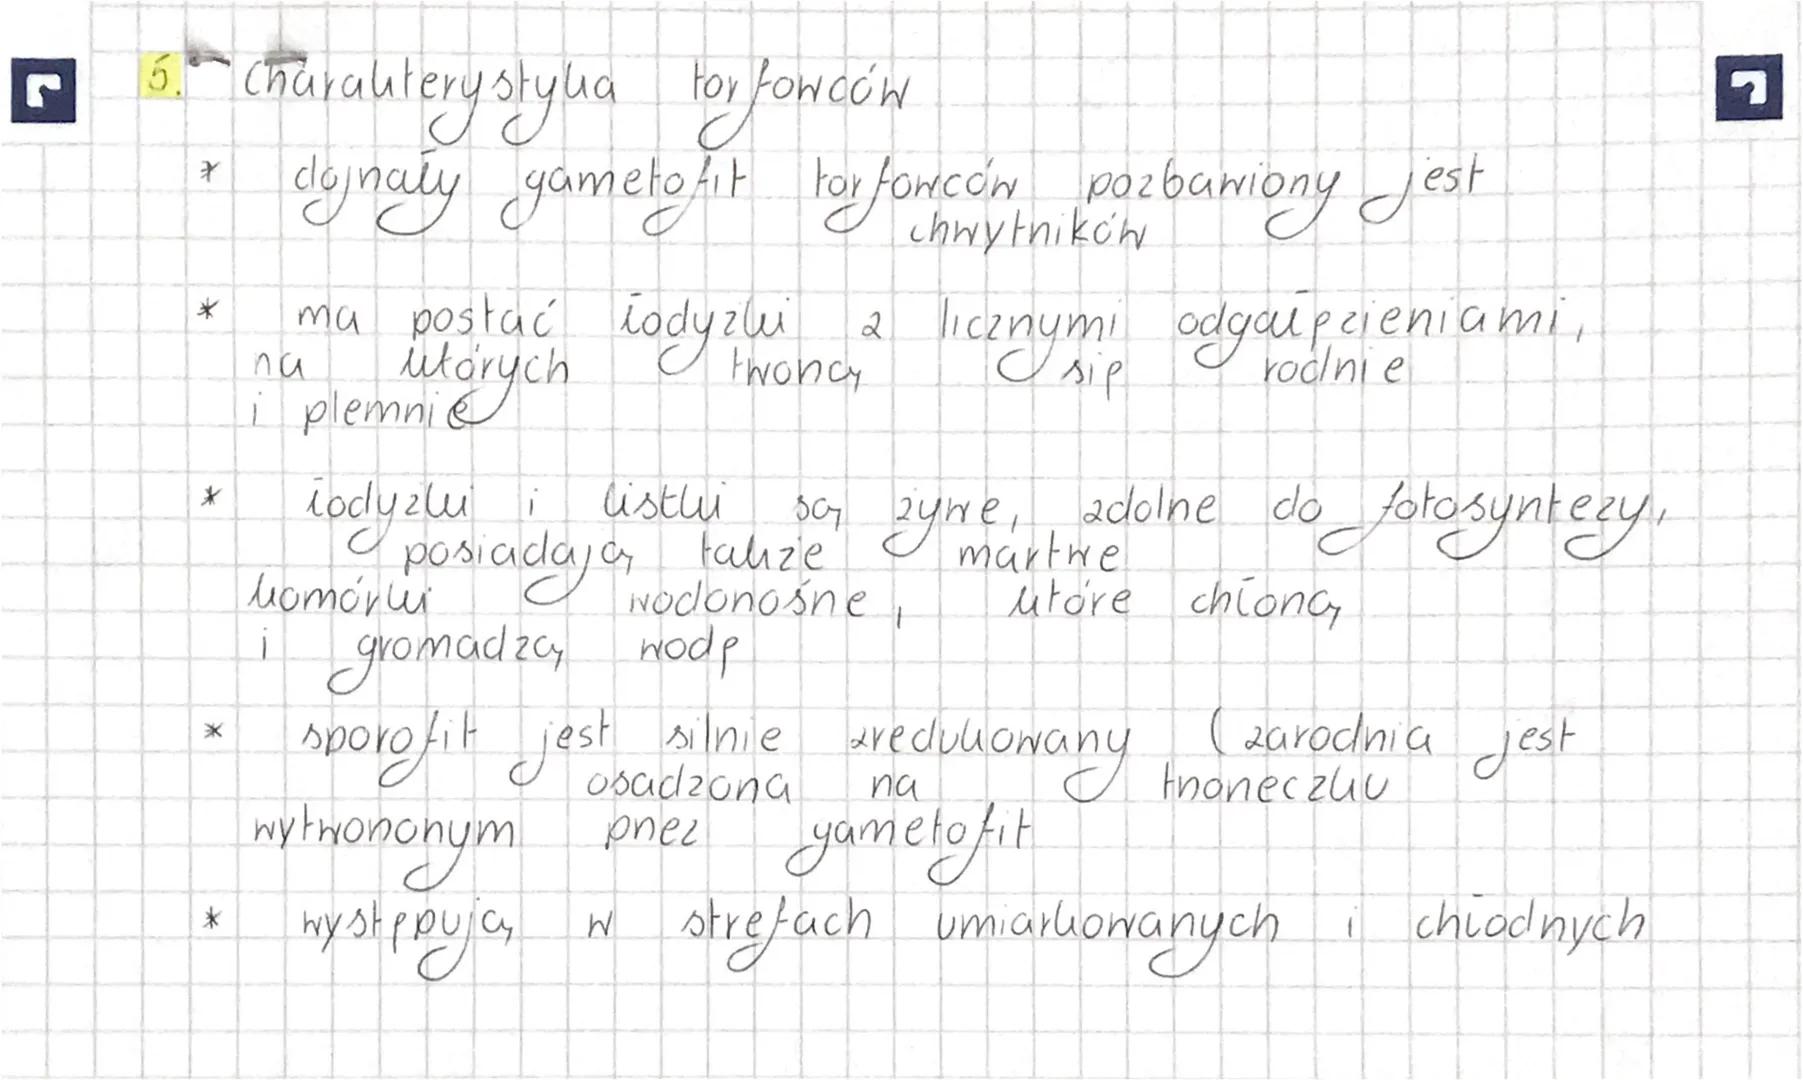 5. Charakterystyka torfowców
* dojrzały gametofit torfowców pozbawiony jest
chwytników
* ma postać łodyżki z licznymi odgałęzieniami,
na których tworzą się rodnie
i plemnie
* łodyżki i listki są żywe, zdolne do fotosyntezy,
posiadają także martwe
komórki wodonośne, które chłoną
i gromadzą wodę
* sporofit jest silnie zredukowany (zarodnia jest
osadzona na trzoneczku
wytworzonym przez gametofit
* występują w strefach umiarkowanych i chłodnych